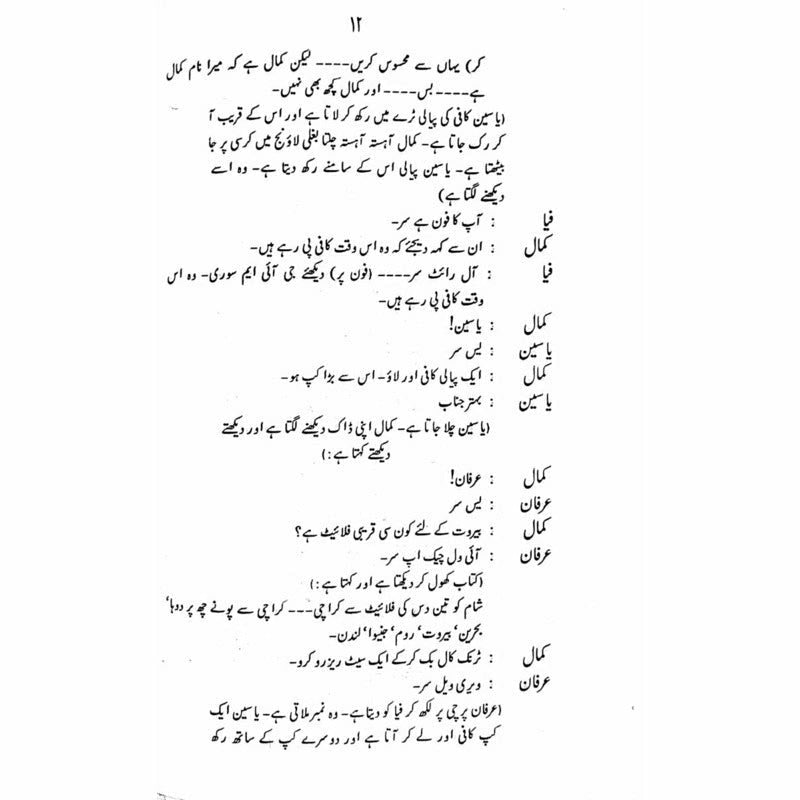 ۱۲
کر) یہاں سے محسوس کریں---- لیکن کمال ہے کہ میرا نام کمال
ہے---- بس---- اور کمال کچھ بھی نہیں۔
(یاسین کافی کی پیالی ٹرے میں رکھ کر لاتا ہے اور اس کے قریب آ
کر رک جاتا ہے۔ کمال آہستہ آہستہ چلتا بغلی لاؤنج میں کرسی پر جا
بیٹھتا ہے۔ یاسین پیالی اس کے سامنے رکھ دیتا ہے۔ وہ اسے
دیکھنے لگتا ہے)
فیا : آپ کا فون ہے سر۔
کمال : ان سے کہہ دیجئے کہ وہ اس وقت کافی پی رہے ہیں۔
فیا : آل رائٹ سر---- (فون پر) دیکھئے جی آئی ایم سوری۔ وہ اس
وقت کافی پی رہے ہیں۔
کمال : یاسین!
یاسین : یس سر
کمال : ایک پیالی کافی اور لاؤ۔ اس سے بڑا کپ ہو۔
یاسین : بہتر جناب
(یاسین چلا جاتا ہے۔ کمال اپنی ڈاک دیکھنے لگتا ہے اور دیکھتے
دیکھتے کہتا ہے:)
کمال : عرفان!
عرفان : یس سر
کمال : بیروت کے لئے کون سی قریبی فلائیٹ ہے؟
عرفان : آئی ول چیک اپ سر۔
(کتاب کھول کر دیکھتا ہے اور کہتا ہے:)
شام کو تین دس کی فلائیٹ سے کراچی--- کراچی سے پونے چھ پر دوہا‘
بحرین‘ بیروت‘ روم‘ جنیوا‘ لندن۔
کمال : ٹرنک کال بک کر کے ایک سیٹ ریزرو کرو۔
عرفان : ویری ویل سر۔
(عرفان پرچی پر لکھ کر فیا کو دیتا ہے۔ وہ نمبر ملاتی ہے۔ یاسین ایک
کپ کافی اور لے کر آتا ہے اور دوسرے کپ کے ساتھ رکھ